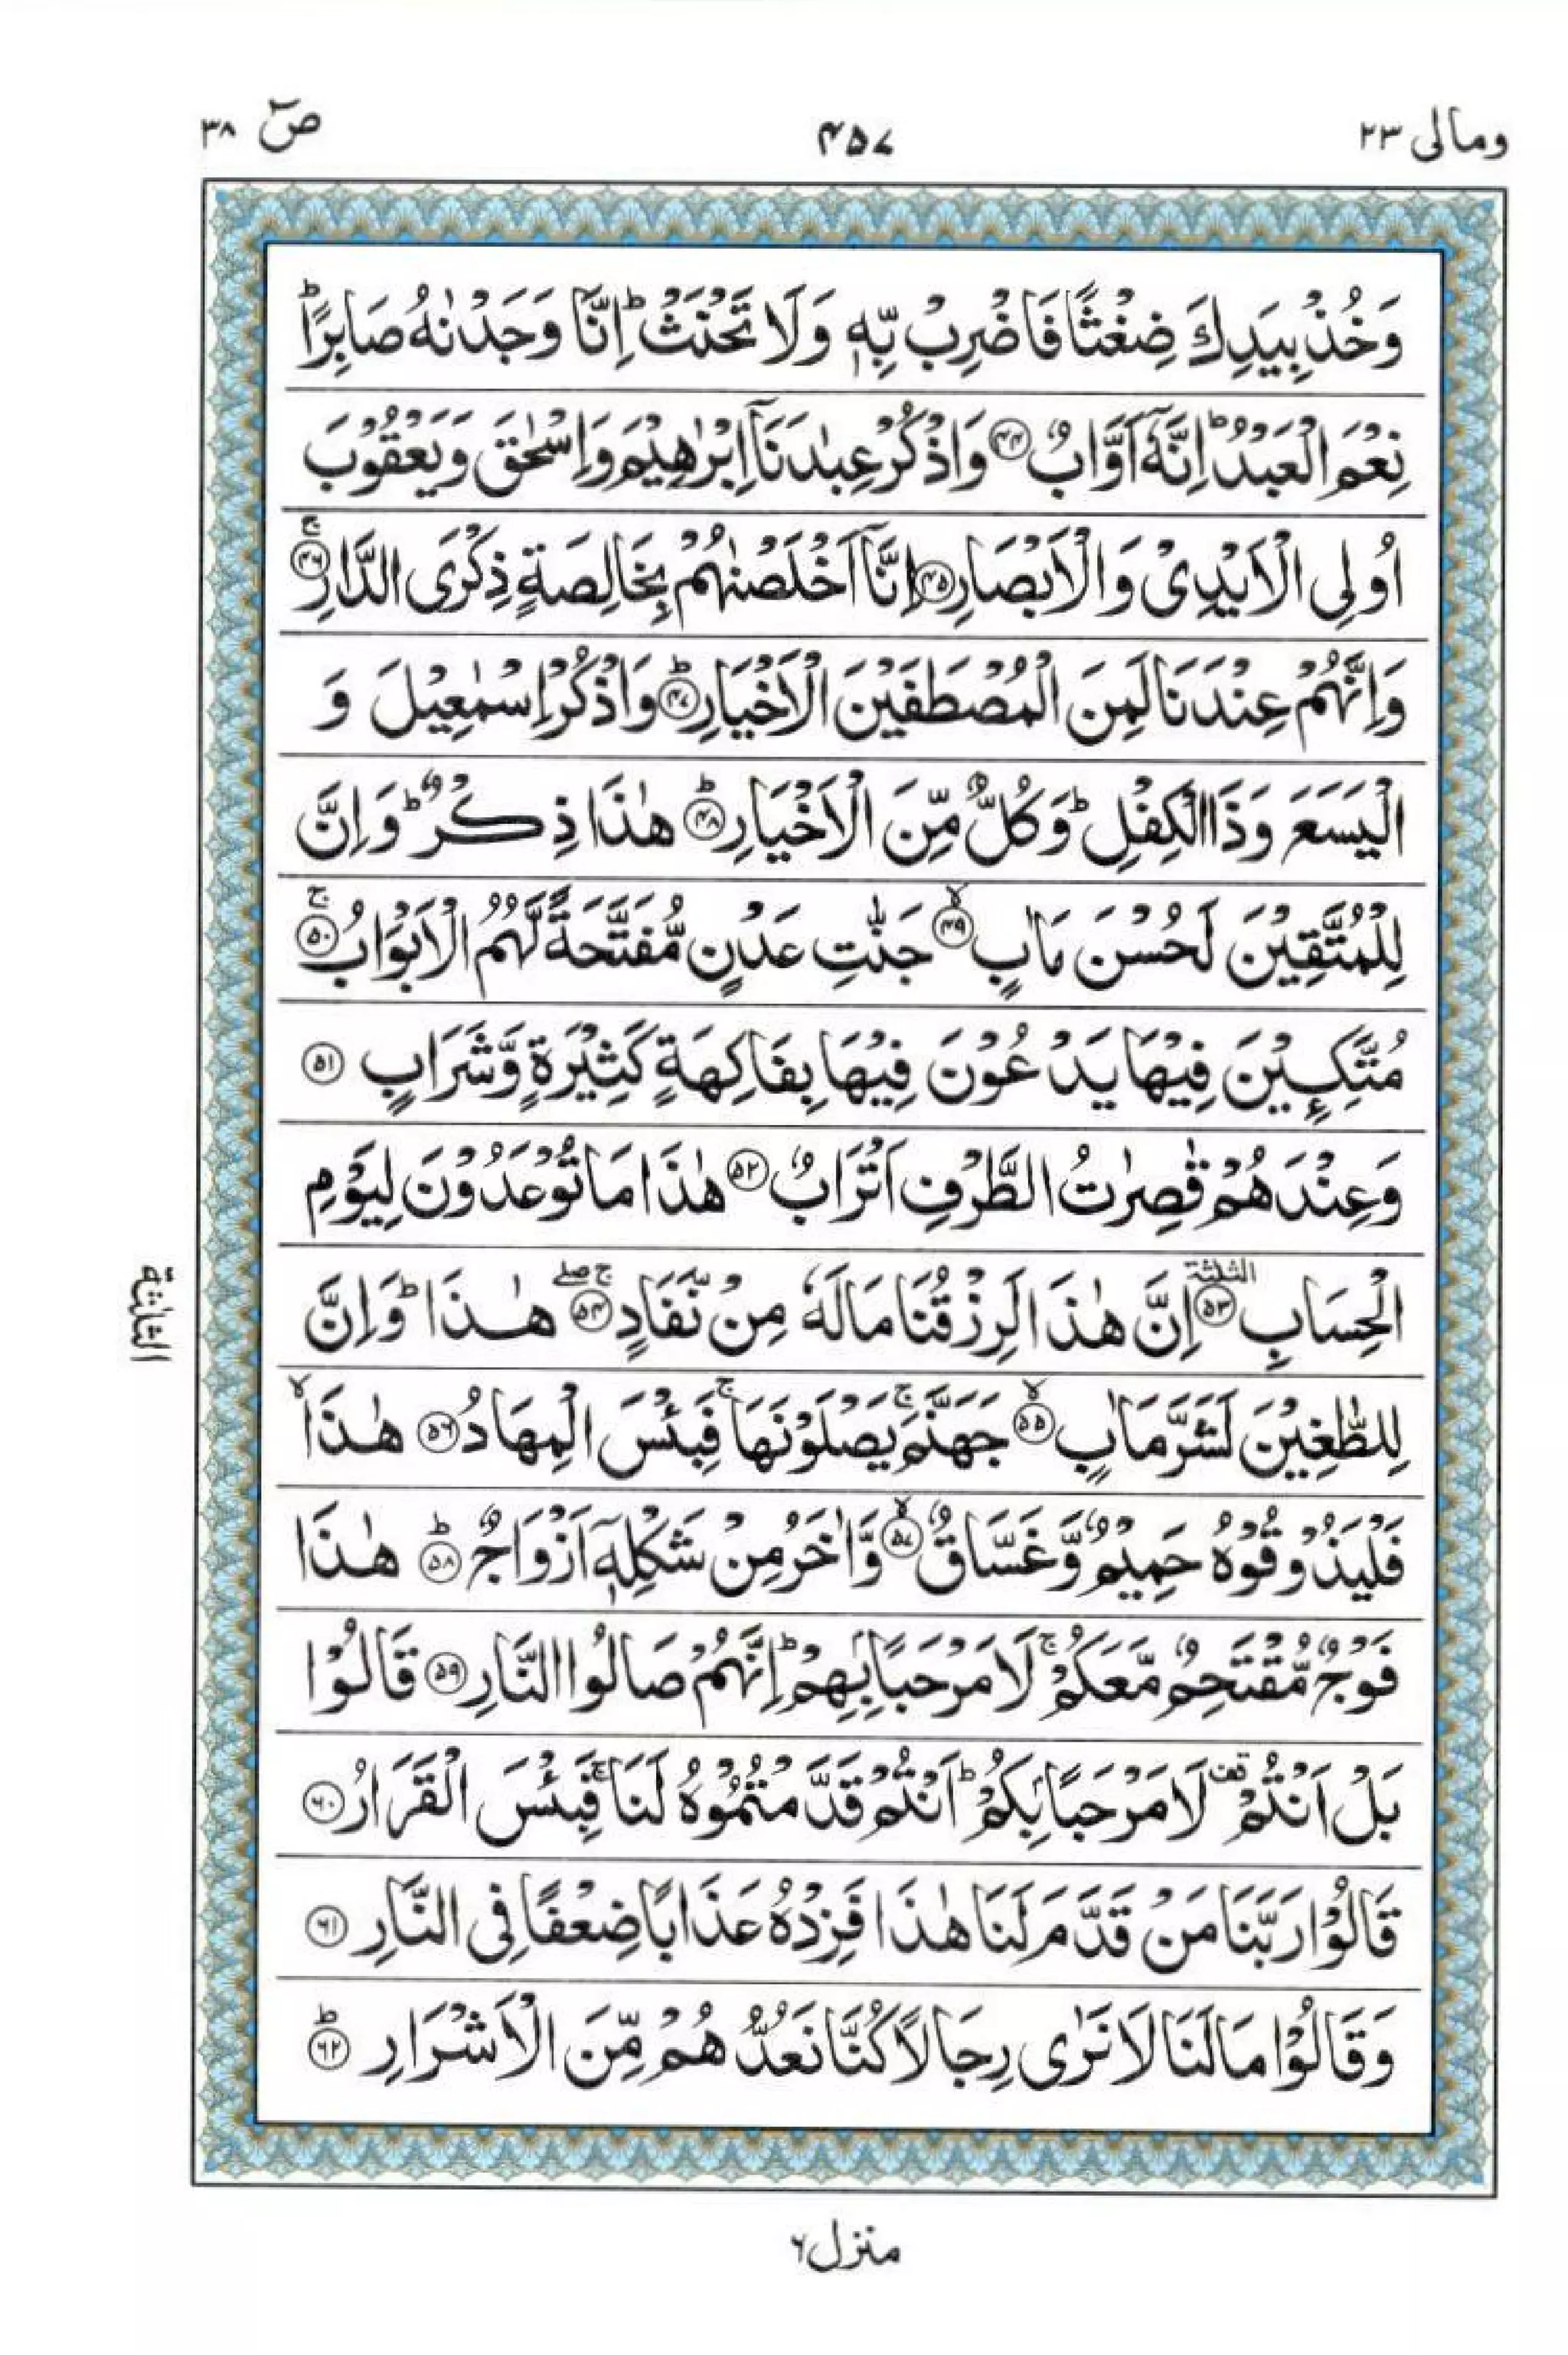 ومالی ٢٣
۴۵۷
صٓ ٣٨
وَخُذْ بِيَدِكَ ضِغْثًا فَاضْرِبْ بِّهٖ وَلَا تَحْنَثْ ؕ اِنَّا وَجَدْنٰهُ صَابِرًا ؕ
نِعْمَ الْعَبْدُ ؕ اِنَّهٗۤ اَوَّابٌ ﴿۴۴﴾ وَاذْكُرْ عِبٰدَنَاۤ اِبْرٰهِيْمَ وَاِسْحٰقَ وَيَعْقُوْبَ
اُولِى الْاَيْدِىْ وَالْاَبْصَارِ ﴿۴۵﴾ اِنَّاۤ اَخْلَصْنٰهُمْ بِخَالِصَةٍ ذِكْرَى الدَّارِ ﴿۴۶﴾ ۚ
وَاِنَّهُمْ عِنْدَنَا لَمِنَ الْمُصْطَفَيْنَ الْاَخْيَارِ ﴿۴۷﴾ ؕ وَاذْكُرْ اِسْمٰعِيْلَ وَ
الْيَسَعَ وَذَا الْكِفْلِ ؕ وَكُلٌّ مِّنَ الْاَخْيَارِ ﴿۴۸﴾ ؕ هٰذَا ذِكْرٌ ؕ وَاِنَّ
لِلْمُتَّقِيْنَ لَحُسْنَ مَاٰبٍ ﴿۴۹﴾ ۙ جَنّٰتِ عَدْنٍ مُّفَتَّحَةً لَّهُمُ الْاَبْوَابُ ﴿۵۰﴾ ۚ
مُتَّكِـِٕيْنَ فِيْهَا يَدْعُوْنَ فِيْهَا بِفَاكِهَةٍ كَثِيْرَةٍ وَّشَرَابٍ ﴿۵۱﴾
وَعِنْدَهُمْ قٰصِرٰتُ الطَّرْفِ اَتْرَابٌ ﴿۵۲﴾ هٰذَا مَا تُوْعَدُوْنَ لِيَوْمِ
الْحِسَابِ ﴿۵۳﴾ الثلٰثة اِنَّ هٰذَا لَرِزْقُنَا مَا لَهٗ مِنْ نَّفَادٍ ﴿۵۴﴾ ۚ ۖ هٰذَا ؕ وَاِنَّ
لِلطّٰغِيْنَ لَشَرَّ مَاٰبٍ ﴿۵۵﴾ ۙ جَهَنَّمَ ۚ يَصْلَوْنَهَا ۚ فَبِئْسَ الْمِهَادُ ﴿۵۶﴾ هٰذَا ۙ
فَلْيَذُوْقُوْهُ حَمِيْمٌ وَّغَسَّاقٌ ﴿۵۷﴾ ۙ وَّاٰخَرُ مِنْ شَكْلِهٖۤ اَزْوَاجٌ ﴿۵۸﴾ ؕ هٰذَا
فَوْجٌ مُّقْتَحِمٌ مَّعَكُمْ ۚ لَا مَرْحَبًاۢ بِهِمْ ؕ اِنَّهُمْ صَالُوا النَّارِ ﴿۵۹﴾ قَالُوْا
بَلْ اَنْتُمْ قف لَا مَرْحَبًاۢ بِكُمْ ؕ اَنْتُمْ قَدَّمْتُمُوْهُ لَنَا ۚ فَبِئْسَ الْقَرَارُ ﴿۶۰﴾
قَالُوْا رَبَّنَا مَنْ قَدَّمَ لَنَا هٰذَا فَزِدْهُ عَذَابًا ضِعْفًا فِى النَّارِ ﴿۶۱﴾
وَقَالُوْا مَا لَنَا لَا نَرٰى رِجَالًا كُنَّا نَعُدُّهُمْ مِّنَ الْاَشْرَارِ ﴿۶۲﴾ ؕ
الثلثة
منزل ۶